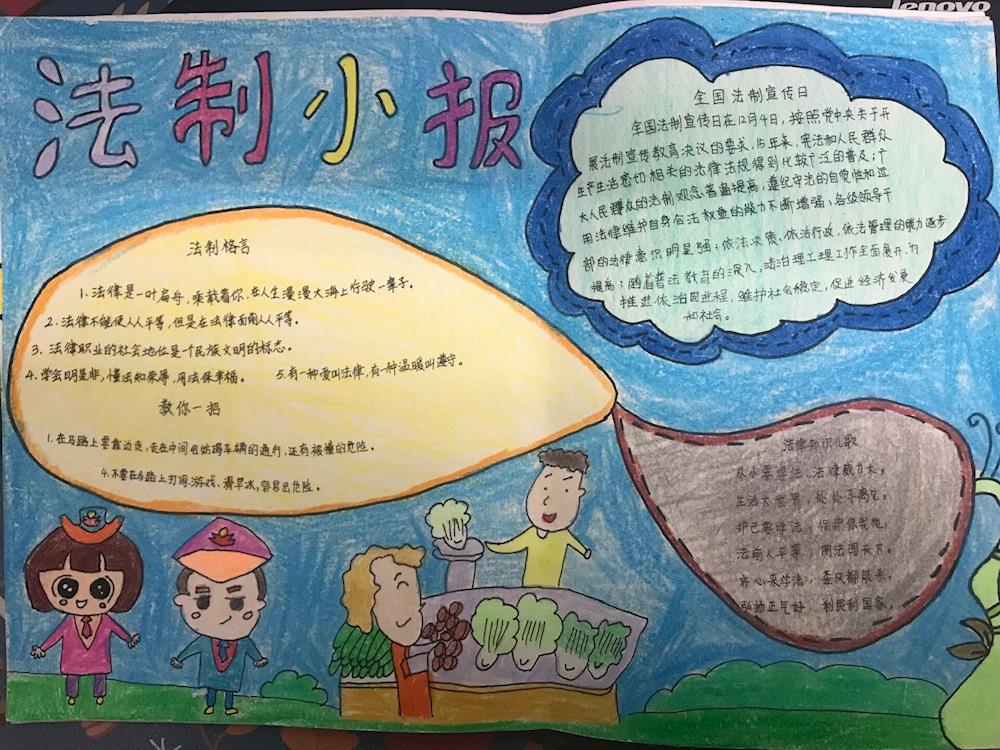 lenovo
法制小报
全国法制宣传日
全国法制宣传日在12月4日，按照党中央关于开
展法制宣传教育决议的要求，15年来，宪法和人民群众
生产生活密切相关的法律法规得到比较广泛的普及；广
大人民群众的法制观念普遍提高，遵纪守法的自觉性和运
用法律维护自身合法权益的能力不断增强、各级领导干
部的法律意识明显强；依法决策、依法行政，依法管理的能力逐步
提高；随着普法教育的深入，法治理工理工作全面展开，为
推进依治国进程，维护社会稳定，促进经济发展
和社会。
法制格言
1、法律是一叶扁舟，乘载着你，在人生漫漫大海上行驶一辈子。
2、法律不能使人人平等，但是在法律面前人人平等。
3、法律职业的社会地位是一个民族文明的标志。
4、学会明是非，懂法知荣辱，用法保幸福。 5、有一种爱叫法律，有一种温暖叫遵守。
教你一招
1、在马路上要靠边走，走在中间会妨碍车辆的通行，还有被撞的危险。
4、不要在马路上打闹、游戏、滑旱冰，容易出危险。
法律知识儿歌
从小要学法，法律威力大，
生活大世界，处处不离它。
护己要学法，保护你我他，
法前人平等，用法闯天下。
齐心来学法，歪风都能杀，
弘扬正气好，利民利国家。